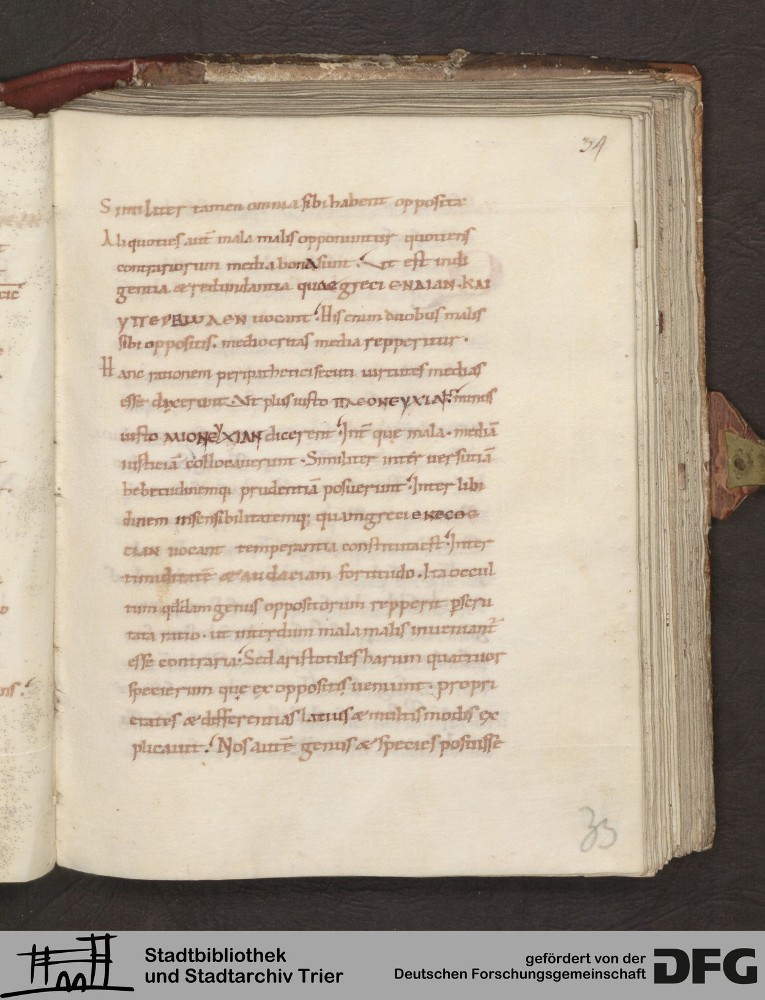 34
Similiter tamen omnia sibi habent opposita
Aliquoties aut̄ mala malis opponuntur quotiens
contrariorum media bona sunt. Ut est indi
gentia & redundantia quae greci ΕΝΔΙΑΝ·ΚΑΙ
ΥΠΕΡΒΩΛΕΝ uocant. His enim duobus malis
sibi oppositis. mediocritas media repperitur.
Hanc rationem peripathetici secuti uirtutes medias
esse dixerunt. Ut plus iusto ΠΛΕΟΝΕΥΧΙΑΝ. minus
iusto ΜΙΟΝΕΥΧΙΑΝ dicerent. Int̄ que mala. mediā
iusticiā collocauerunt. Similiter inter uersutiā
hebetudinemq; prudentiā posuerunt. Inter libi
dinem insensibilitatemq; quam greci
uocant temperantia constituta est. Inter
timiditatē & audaciam fortitudo. Ita occul
tum qddam genus oppositorum repperit pscru
tata ratio. ut interdum mala malis inueniant̄
esse contraria. Sed aristotiles harum quattuor
specierum que ex oppositis ueniunt. propri
etates & differentias latius & multis modis ex
plicauit. Nos autē genus & species posuisse
33
Stadtbibliothek
und Stadtarchiv Trier
gefördert von der
Deutschen Forschungsgemeinschaft
DFG